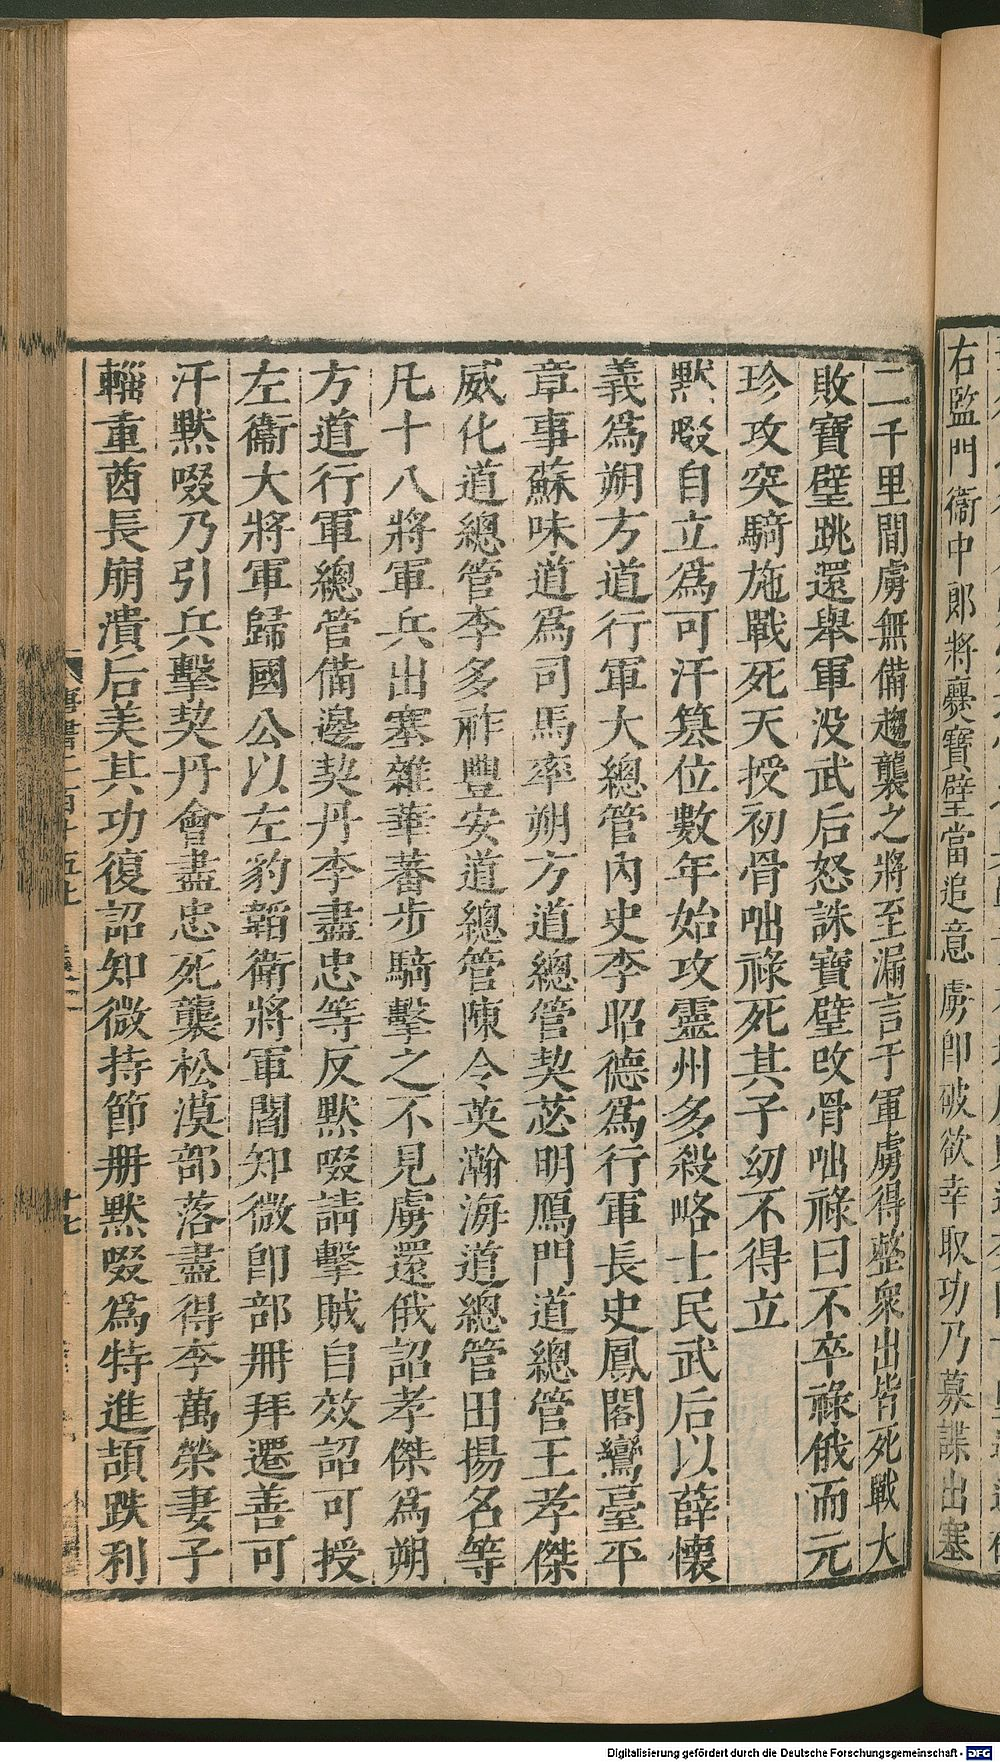 右監門衞中郎將爨寶璧當追意虜卽破欲幸取功乃募諜出塞
二千里間虜無備趨襲之將至漏言于軍虜得整衆出皆死戰大
敗寶璧跳還舉軍沒武后怒誅寶璧改骨咄祿曰不卒祿俄而元
珍攻突騎施戰死天授初骨咄祿死其子幼不得立
黙啜自立爲可汗簒位數年始攻靈州多殺略士民武后以薛懷
義爲朔方道行軍大總管內史李昭德爲行軍長史鳳閣鸞臺平
章事蘇味道爲司馬率朔方道總管契苾明鴈門道總管王孝傑
威化道總管李多祚豐安道總管陳令英瀚海道總管田揚名等
凡十八將軍兵出塞雜華蕃步騎擊之不見虜還俄詔孝傑爲朔
方道行軍總管備邊契丹李盡忠等反黙啜請擊賊自效詔可授
左衞大將軍歸國公以左豹韜衞將軍閻知微卽部冊拜遷善可
汗黙啜乃引兵擊契丹會盡忠死襲松漠部落盡得李萬榮妻子
輜重酋長崩潰后美其功復詔知微持節冊黙啜爲特進頡跌利
唐書二百十五上
十七
Digitalisierung gefördert durch die Deutsche Forschungsgemeinschaft - DFG